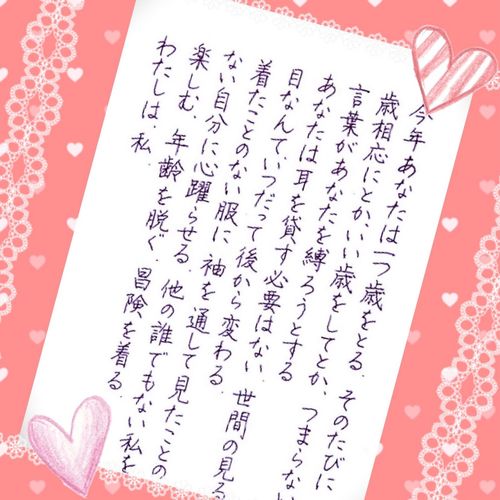 今年あなたは一つ歳をとる。そのたびに
歳相応にとか、いい歳をしてとか、つまらない
言葉があなたを縛ろうとする
あなたは耳を貸す必要はない。世間の見る
目なんていつだって後から変わる。
着たことのない服に袖を通して見たことの
ない自分に心躍らせる。他の誰でもない私を
楽しむ。年齢を脱ぐ。冒険を着る。
わたしは、私。